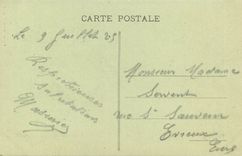 CARTE POSTALE
Le 9 Juillet 25
Monsieur Madame
Respectueuses
Salutations
rue St Sauveur
Evreux
Eure